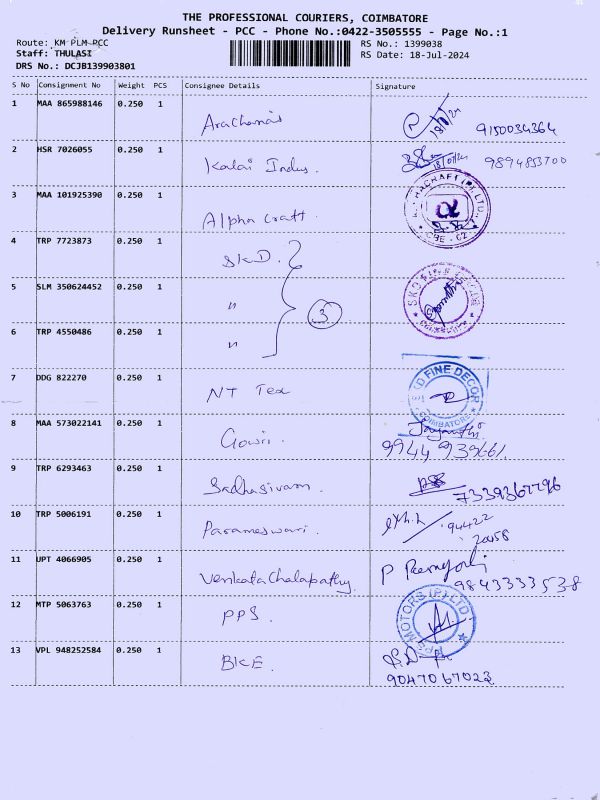 THE PROFESSIONAL COURIERS, COIMBATORE
Delivery Runsheet - PCC - Phone No.:0422-3505555 - Page No.:1
Route: KM PLM PCC
RS No.: 1399038
Staff: THULASI
RS Date: 18-Jul-2024
DRS No.: DCJB139903801
S No Consignment No Weight PCS Consignee Details Signature
1 MAA 865988146 0.250 1 Arachanas 18/7/24 9150034364
2 HSR 7026055 0.250 1 Kalai Indus. 18/07/24 9894853700
3 MAA 101925390 0.250 1 Alpha Craft.
4 TRP 7723873 0.250 1 SKD.
5 SLM 350624452 0.250 1 " 3
6 TRP 4550486 0.250 1 "
7 DDG 822270 0.250 1 NT Tex FINE DECOR COIMBATORE
8 MAA 573022141 0.250 1 Gowri. Jayanthi
9 TRP 6293463 0.250 1 Sadhasivam. 7339367796
10 TRP 5006191 0.250 1 Parameswari. 94422
20058
11 UPT 4066905 0.250 1 Venkatachalapathy. 9843333538
12 MTP 5063763 0.250 1 PPS. PPS MOTORS (P) LTD
13 VPL 948252584 0.250 1 BKE.
9047067023